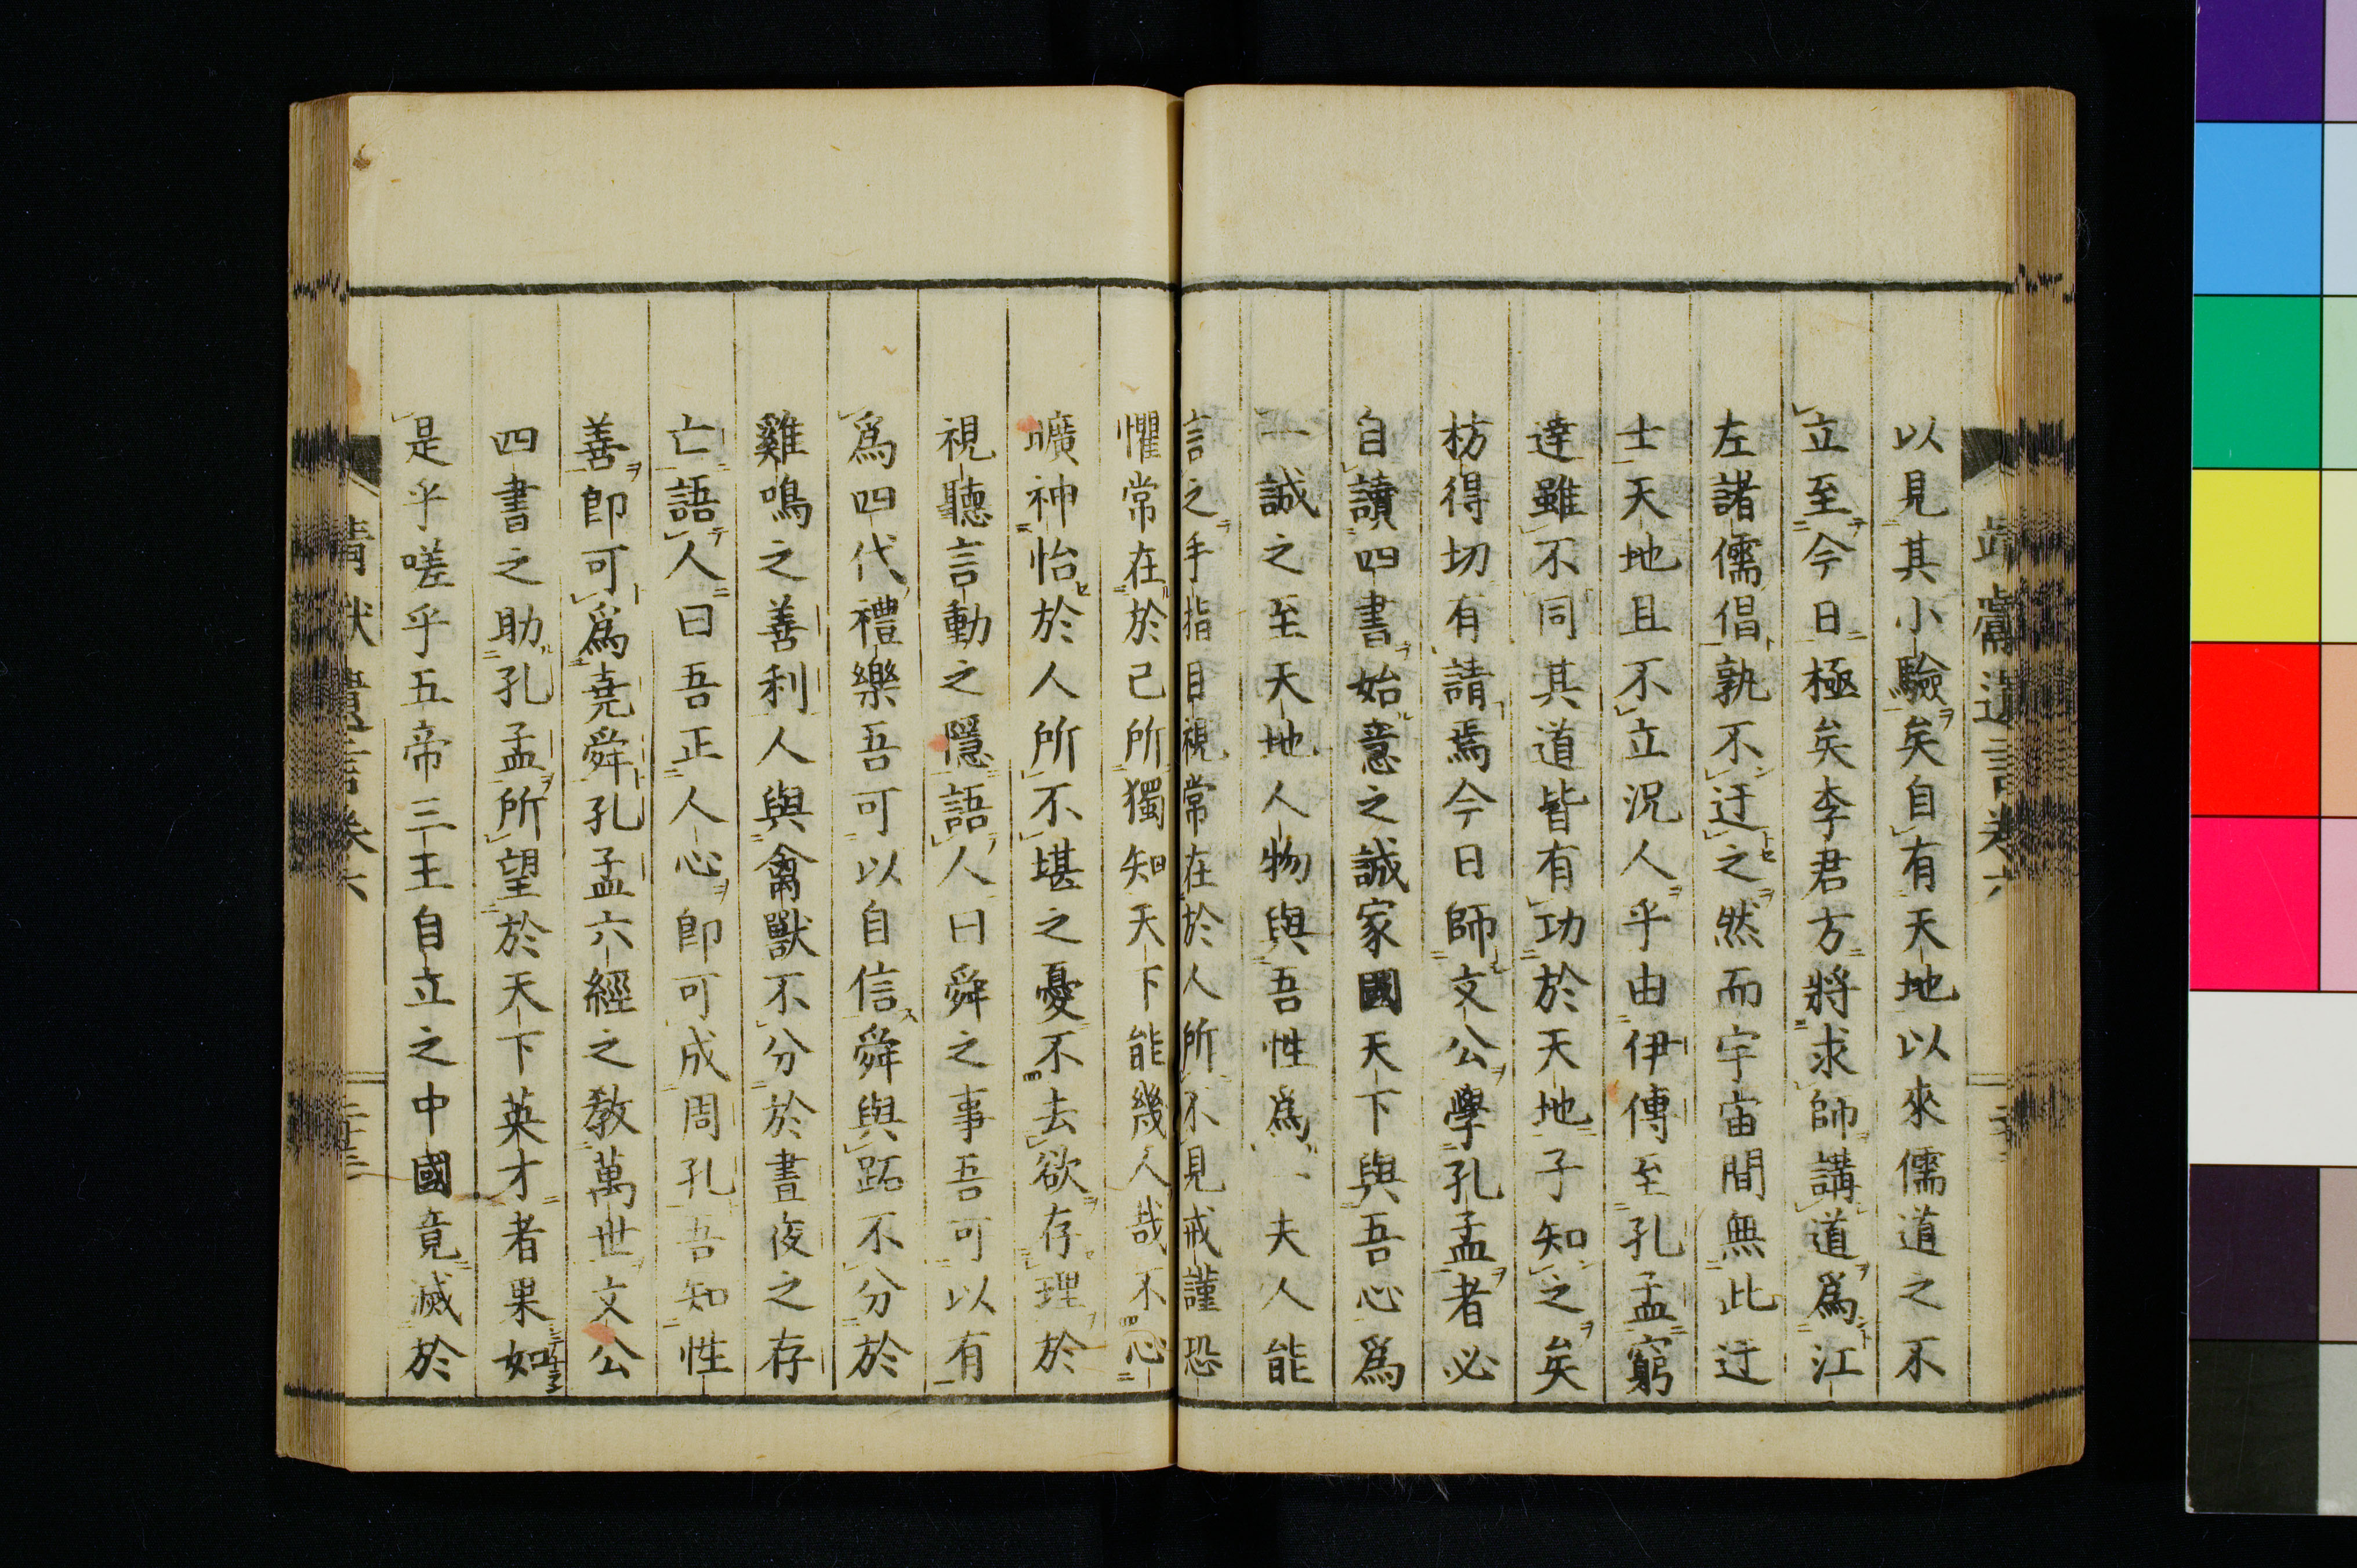 以見其小驗矣自有天地以來儒道之不
立至今日極矣李君方將求師講道爲江
左諸儒倡孰不迂之然而宇宙間無此迂
士天地且不立況人乎由伊傳至孔孟窮
達雖不同其道皆有功於天地子知之矣
枋得切有請焉今日師文公學孔孟者必
自讀四書始意之誠家國天下與吾心爲
一誠之至天地人物與吾性爲一夫人能
言之手指目視常在於人所不見戒謹恐
懼常在於己所獨知天下能幾人哉不心
曠神怡於人所不堪之憂不去欲存理於
視聽言動之隱語人曰舜之事吾可以有
爲四代禮樂吾可以自信舜與跖不分於
雞鳴之善利人與禽獸不分於晝夜之存
亡語人曰吾正人心即可成周孔吾知性
善即可爲堯舜孔孟六經之教萬世文公
四書之助孔孟所望於天下英才者果如
是乎嗟乎五帝三王自立之中國竟滅於